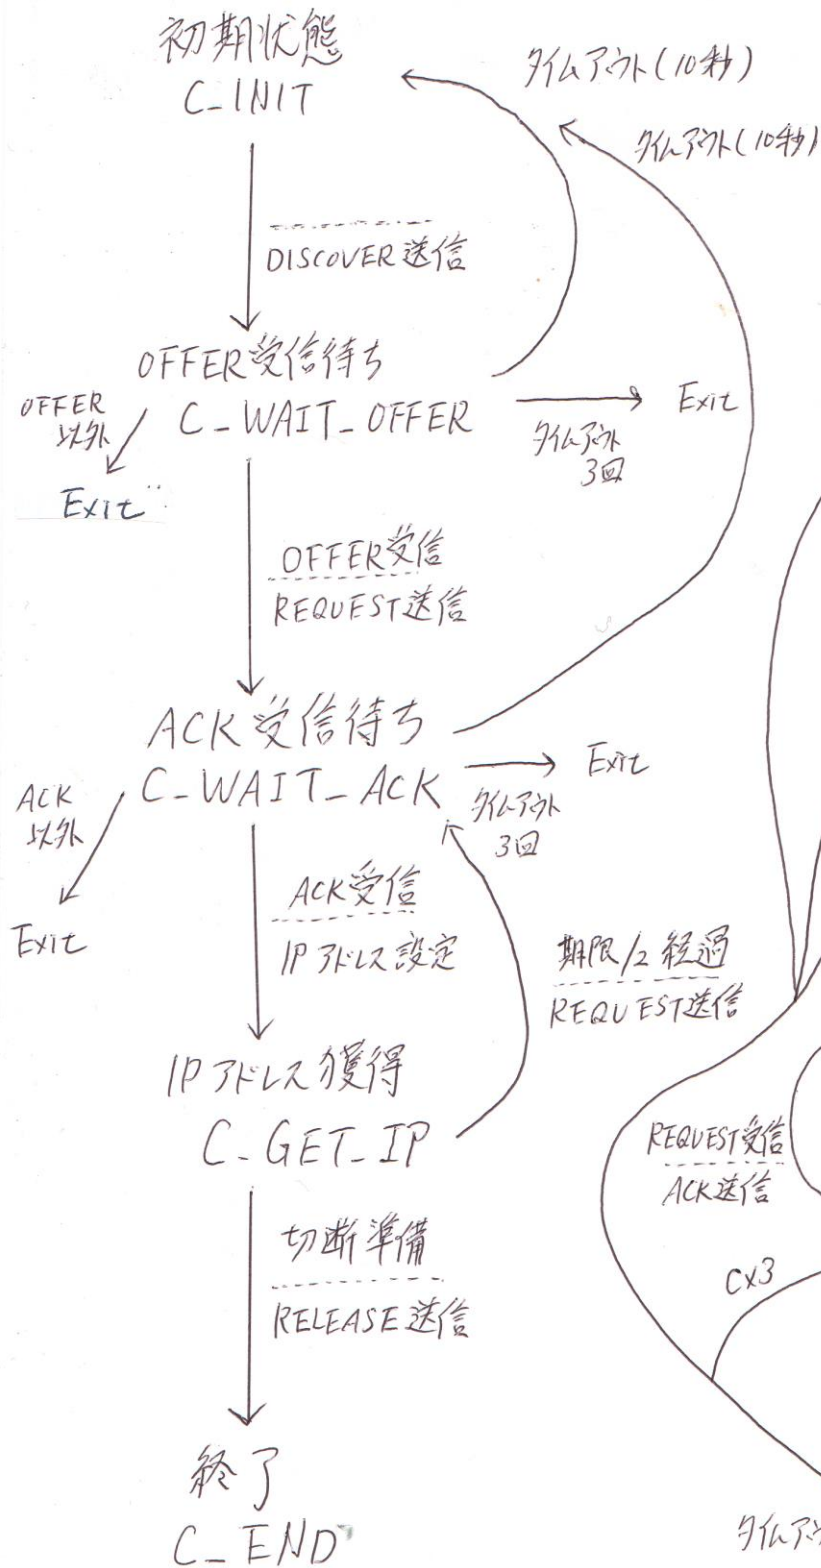 初期状態
C_INIT
タイムアウト(10秒)
タイムアウト(10秒)
DISCOVER送信
OFFER受信待ち
C_WAIT_OFFER
OFFER
以外
Exit
タイムアウト
3回
Exit
OFFER受信
REQUEST送信
ACK受信待ち
C_WAIT_ACK
ACK
以外
Exit
タイムアウト
3回
Exit
ACK受信
IPアドレス設定
期限/2 経過
REQUEST送信
IPアドレス獲得
C_GET_IP
REQUEST受信
ACK送信
切断準備
RELEASE送信
CX3
終了
C_END
タイムア